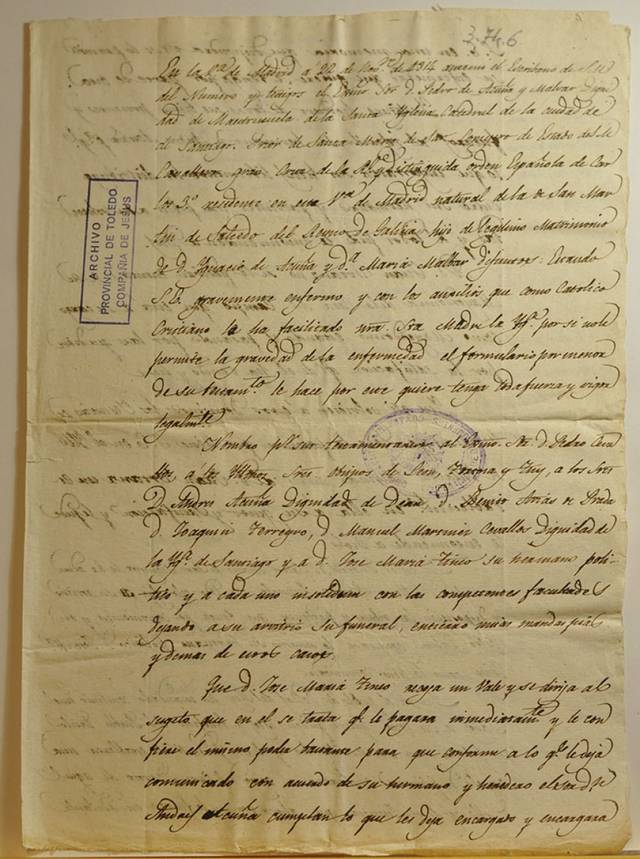 3.74.6
ARCHIVO
PROVINCIAL DE TOLEDO
COMPAÑIA DE JESUS
En la V.ª de Madrid a 22 de Nov.e de 1814 ante mi el Escribano de S.M.
del Numero y testigos el Exmo Sor D. Pedro de Acuña y Malvar Digni
dad de Maestrescuela de la Santa Yglesia Catedral de la ciudad de
de Santiago, Prior de Santa Maria de Sar, Consejero de Estado de S.M.
Cavallero gran Cruz de la R.l y distinguida orden Española de Car
los 3.º residente en esta V.ª de Madrid natural de la de San Mar
tin de del Reyno de Galicia hijo de legitimo Matrimonio
de D. Ignacio de Acuña y D.ª Maria Malbar difuntos: Estando
S.E. gravemente enfermo y con los auxilios que como Catolico
Cristiano le ha facilitado nra. Sta Madre la Yg.ª por si no le
permite la gravedad de la enfermedad el formulario por menor
de su testam.to le hace por este quiere tenga toda fuerza y vigor
legalm.te
Nombro p.r sus testamentarios al Exmo. Sr. D. Pedro Ceva
llos, a los Yllmos. Sres obispos de y Tuy, a los Sres
D. Andres Acuña Dignidad de Dean, D. Benito Arias de Prada
D. Joaquin D. Manuel Martinez Cevallos Dignidad de
la Yg.ª de Santiago y a D. Jose Maria Tineo su hermano poli-
tico y a cada uno insolidum con las competentes facultades
dejando a su arvitrio su funeral, entierro misas mandas pias
y demas de estos casos.
Que D. Jose Maria Tineo recoja un Vale y se dirija al
sugeto que en el se trata q.e le pagara inmediatam.te y le con
fiere el mismo poder bastante para que conforme a lo q.e le deja
comunicado con acuerdo de su hermano y heredero el Sor D.
Andres Acuña cumplan lo que les deja encargado y encargara